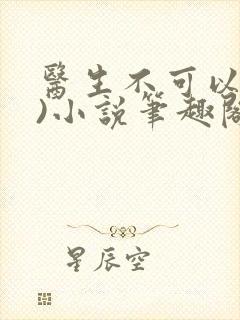 醫生不可以
)小說筆趣閣
星辰空